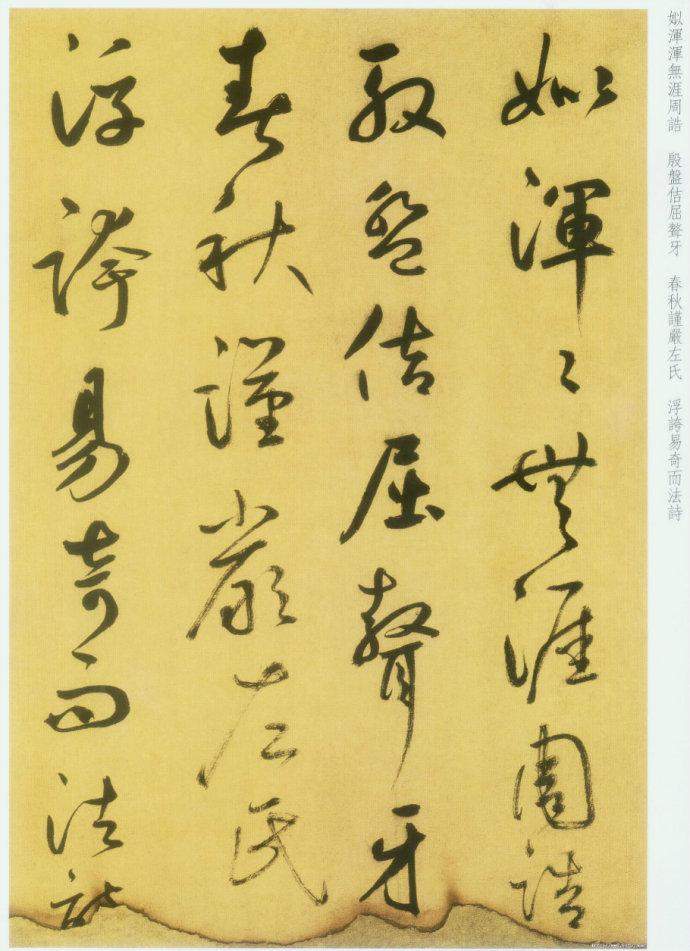 姒渾渾無涯周誥 殷盤佶屈聱牙 春秋謹嚴左氏 浮誇易奇而法詩
姒渾〻無涯周誥
殷盤佶屈聱牙
春秋謹嚴左氏
浮誇易奇而法詩